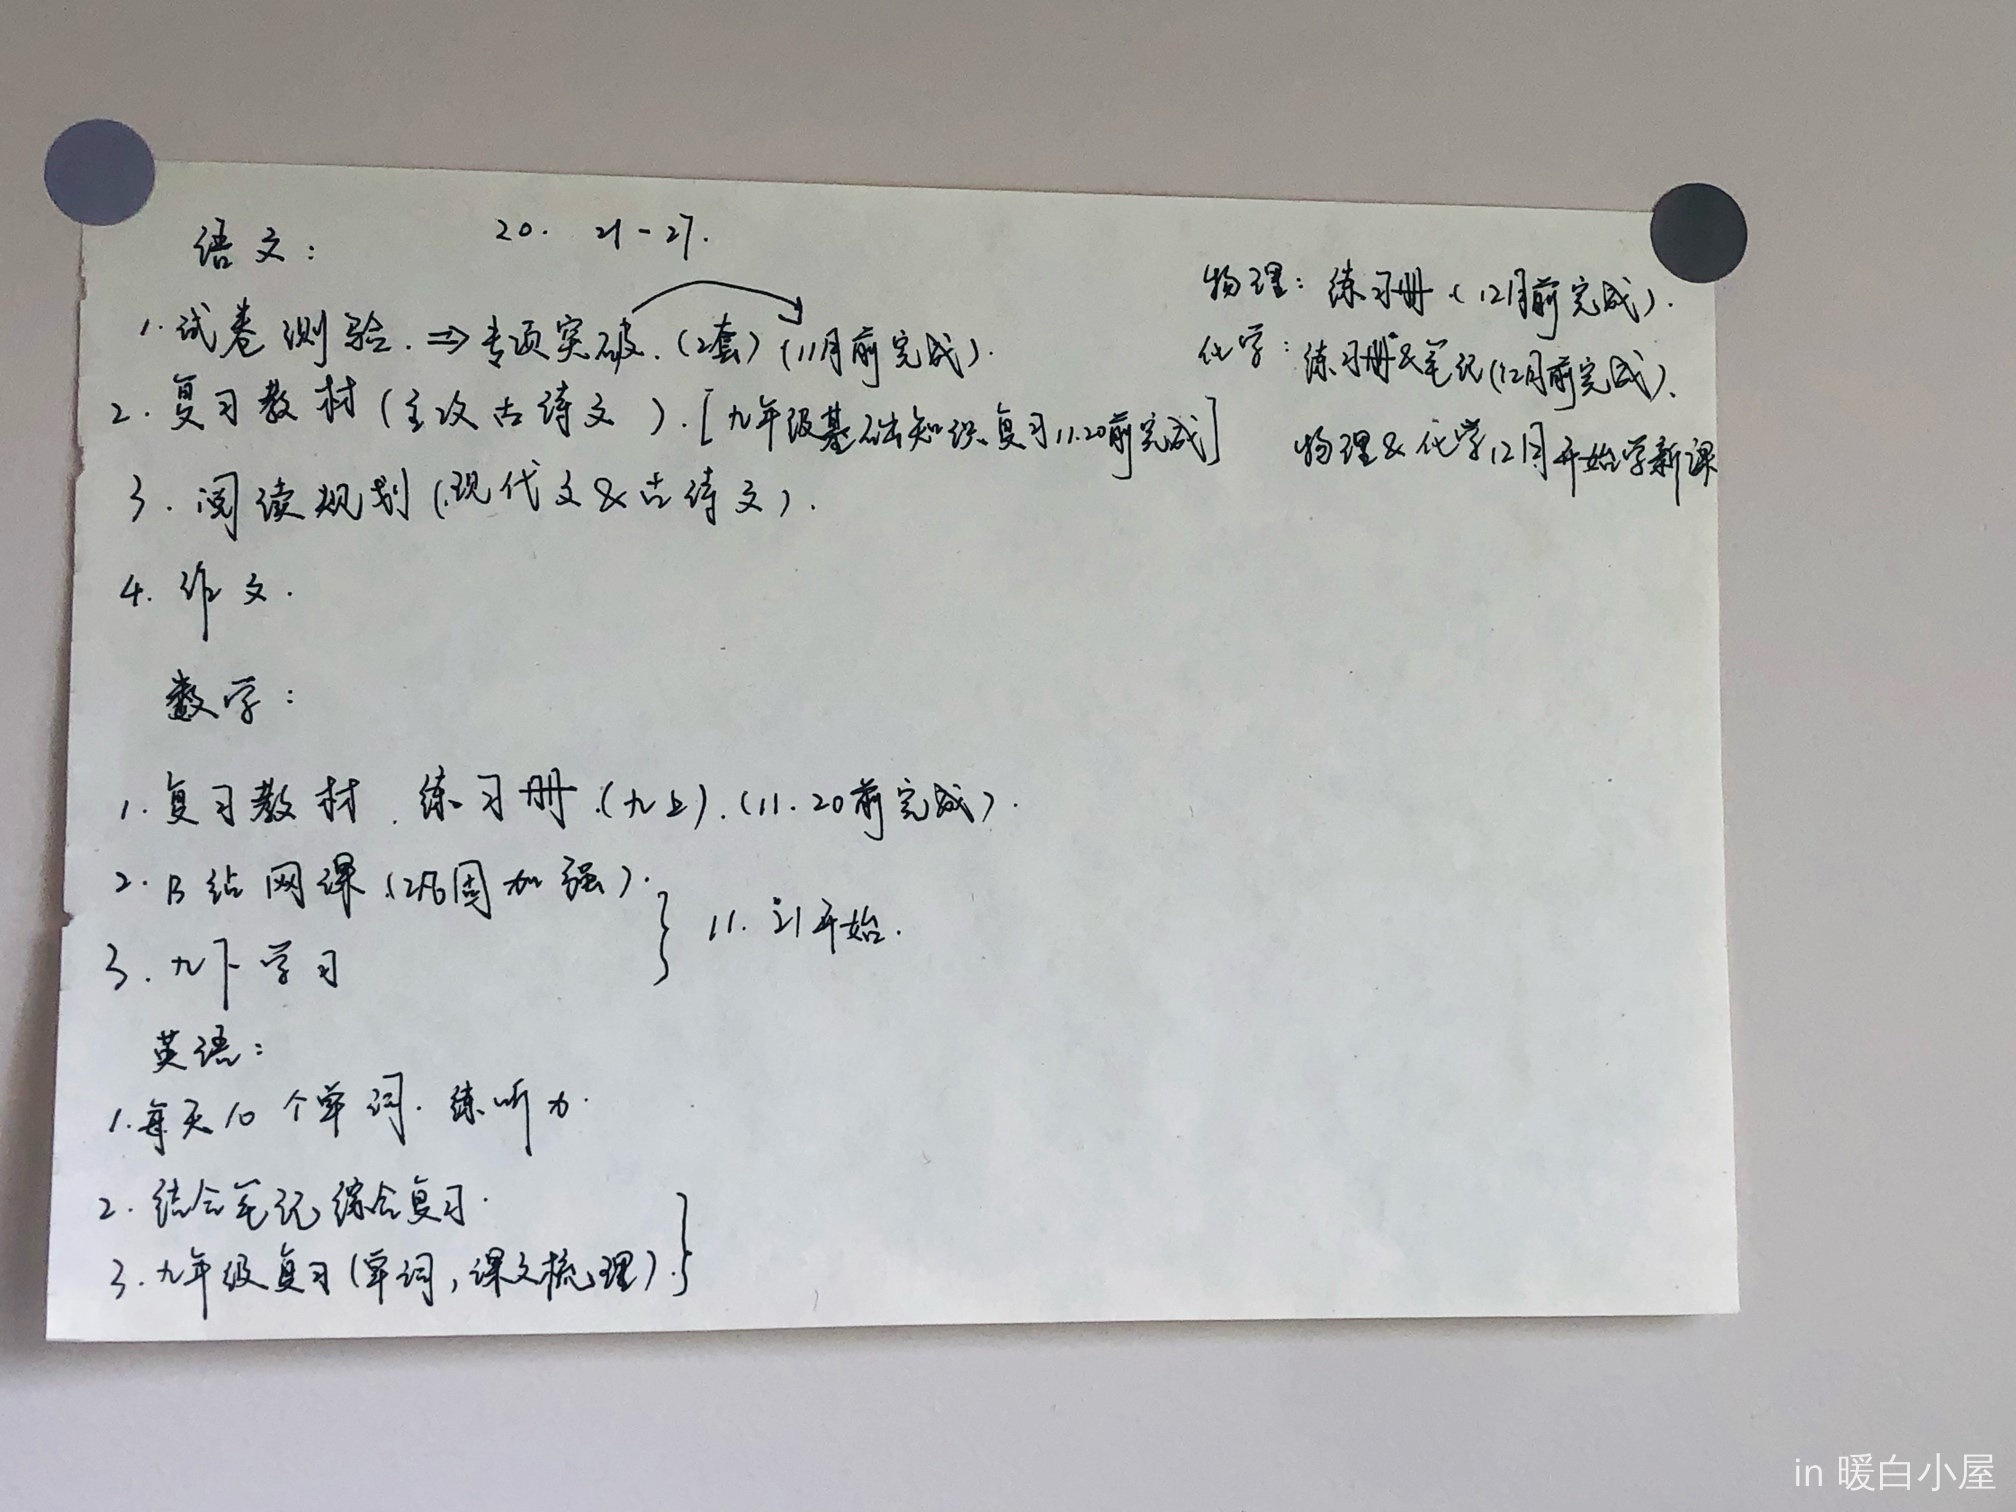 语文： 20. 21-27.
1. 试卷测验. ⇒ 专项突破. (2套) (11月前完成).
2. 复习教材 (主攻古诗文). [九年级基础知识复习11.20前完成]
3. 阅读规划 (现代文&古诗文).
4. 作文.
数学：
1. 复习教材. 练习册. (九上). (11.20前完成).
2. B站网课 (巩固加强).
3. 九下学习
11.21开始.
英语：
1. 每天10个单词. 练听力.
2. 结合笔记综合复习.
3. 九年级复习 (单词, 课文梳理).
物理： 练习册 (12月前完成).
化学： 练习册&笔记 (12月前完成).
物理&化学12月开始学新课
in 暖白小屋